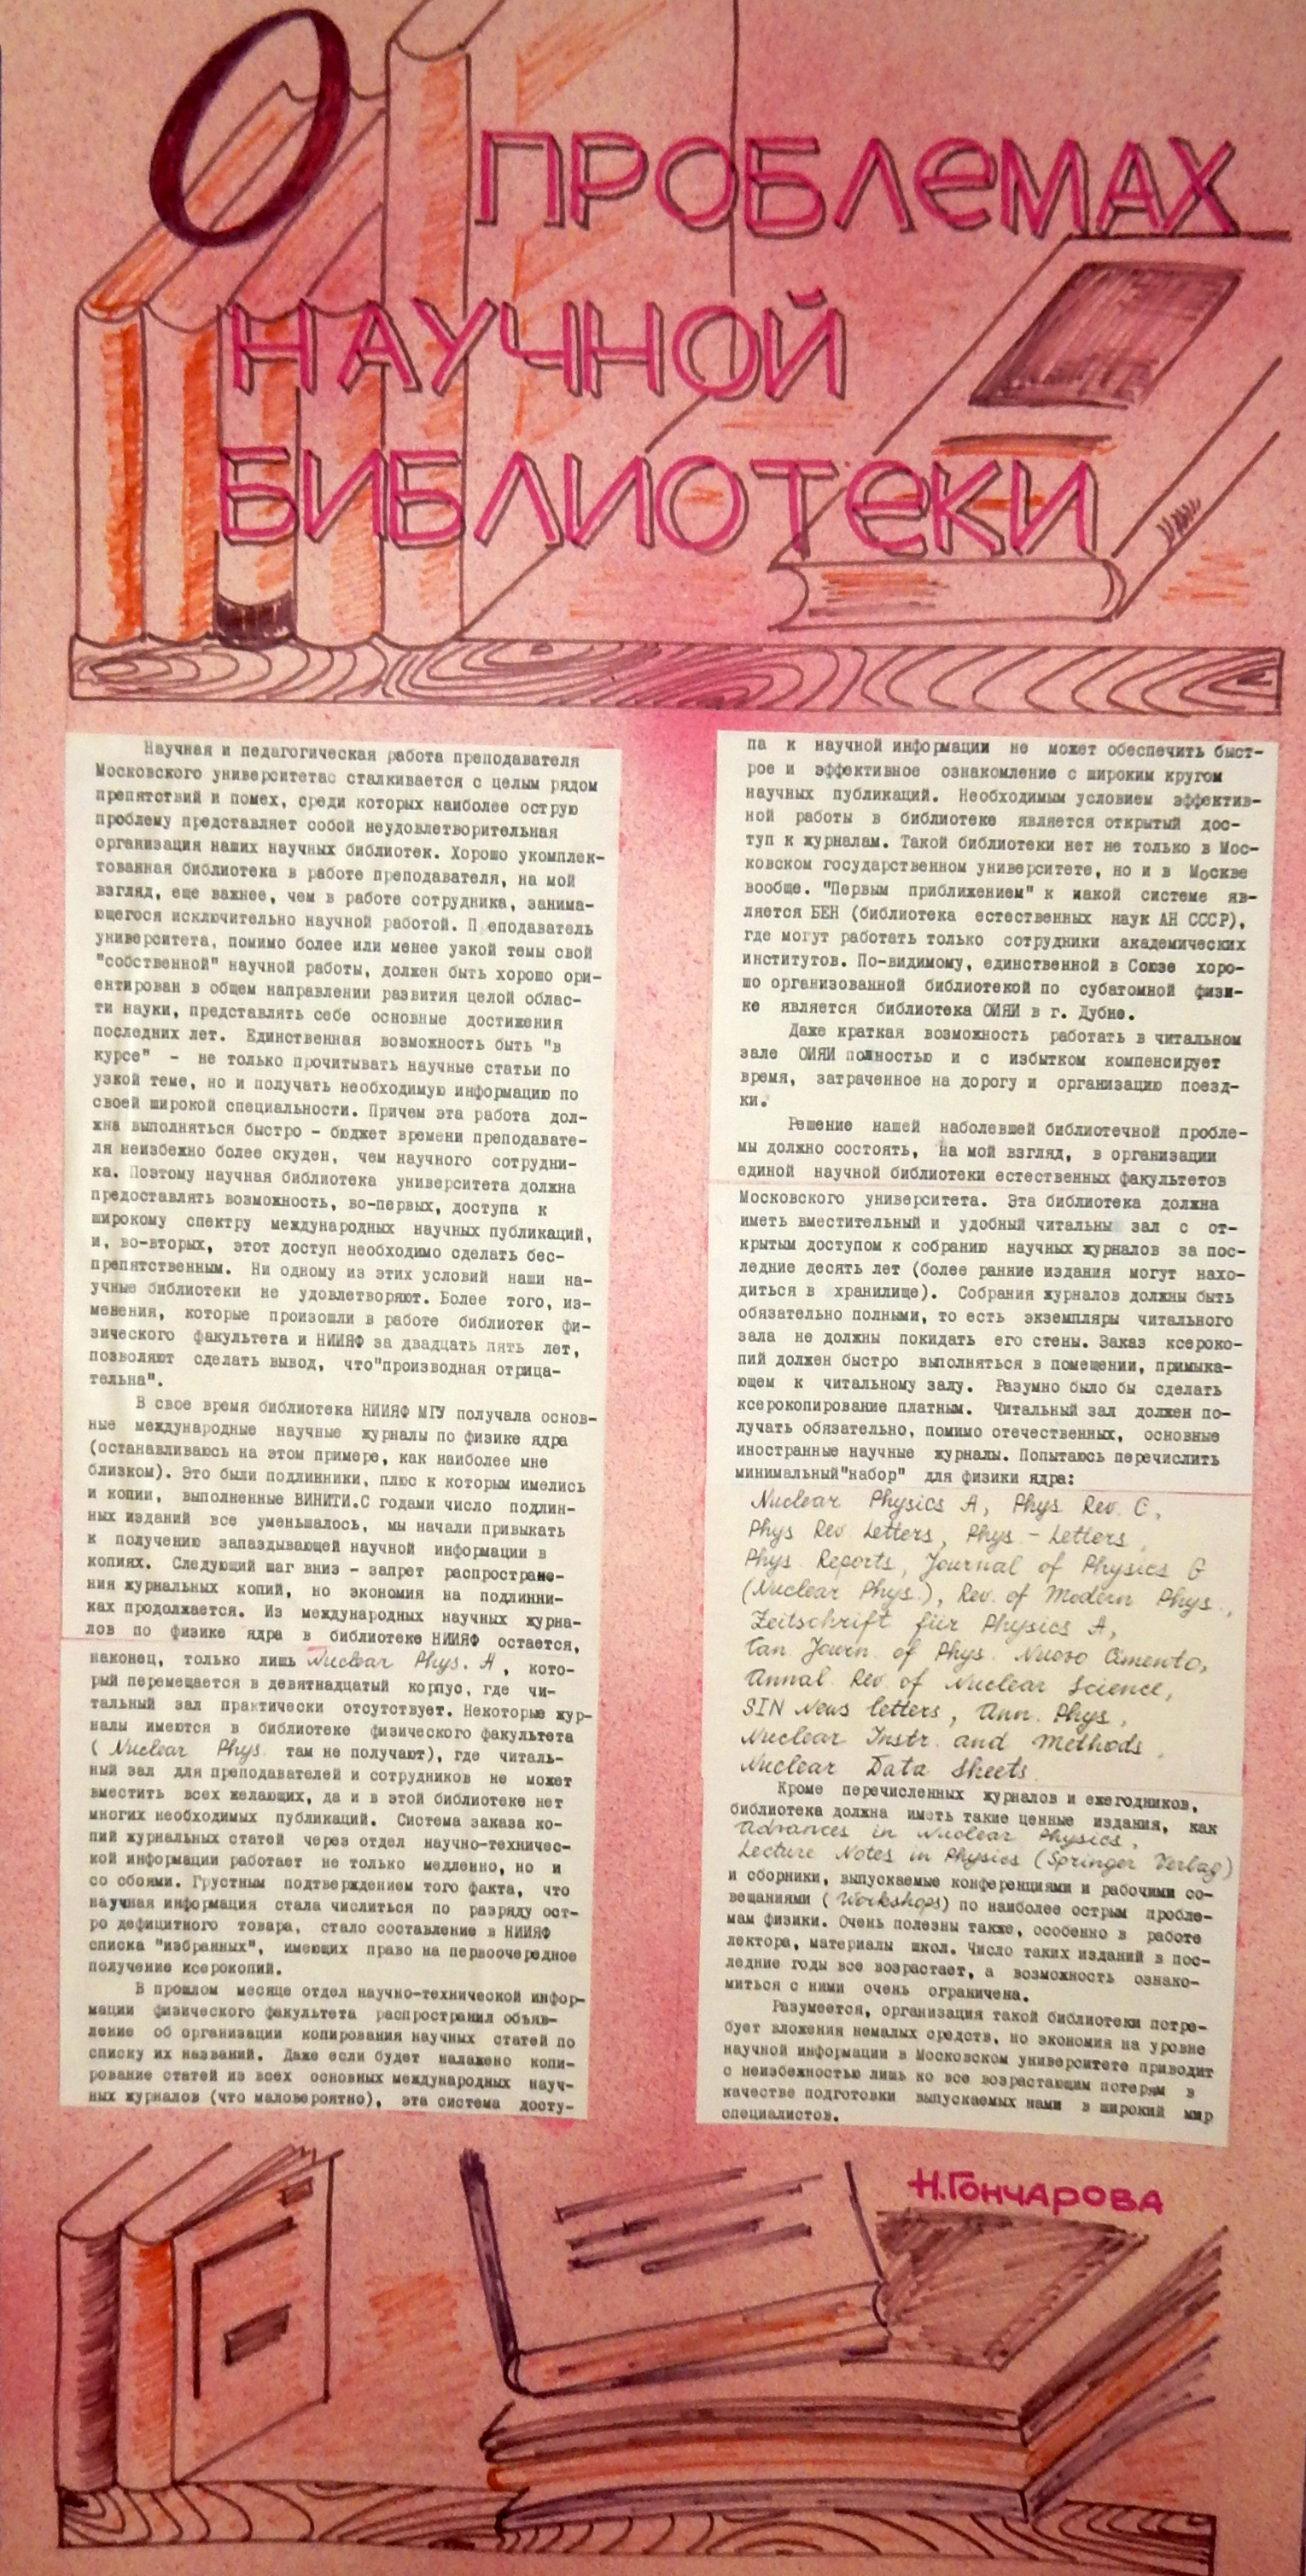 О ПРОБЛЕМАХ
НАУЧНОЙ
БИБЛИОТЕКИ
Научная и педагогическая работа преподавателя
Московского университетас сталкивается с целым рядом
препятствий и помех, среди которых наиболее острую
проблему представляет собой неудовлетворительная
организация наших научных библиотек. Хорошо укомплек-
тованная библиотека в работе преподавателя, на мой
взгляд, еще важнее, чем в работе сотрудника, занима-
ющегося исключительно научной работой. П еподаватель
университета, помимо более или менее узкой темы свой
"собственной" научной работы, должен быть хорошо ори-
ентирован в общем направлении развития целой облас-
ти науки, представлять себе основные достижения
последних лет. Единственная возможность быть "в
курсе" - не только прочитывать научные статьи по
узкой теме, но и получать необходимую информацию по
своей широкой специальности. Причем эта работа дол-
жна выполняться быстро - бюджет времени преподавате-
ля неизбежно более скуден, чем научного сотрудни-
ка. Поэтому научная библиотека университета должна
предоставлять возможность, во-первых, доступа к
широкому спектру международных научных публикаций,
и, во-вторых, этот доступ необходимо сделать бес-
препятственным. Ни одному из этих условий наши на-
учные библиотеки не удовлетворяют. Более того, из-
менения, которые произошли в работе библиотек фи-
зического факультета и НИИЯФ за двадцать пять лет,
позволяют сделать вывод, что"производная отрица-
тельна".
В свое время библиотека НИИЯФ МГУ получала основ-
ные международные научные журналы по физике ядра
(останавливаюсь на этом примере, как наиболее мне
близком). Это были подлинники, плюс к которым имелись
и копии, выполненные ВИНИТИ.С годами число подлин-
ных изданий все уменьшалось, мы начали привыкать
к получению запаздывающей научной информации в
копиях. Следующий шаг вниз - запрет распростране-
ния журнальных копий, но экономия на подлинни-
ках продолжается. Из международных научных журна-
лов по физике ядра в библиотеке НИИЯФ остается,
наконец, только лишь Nuclear Phys. A, кото-
рый перемещается в девятнадцатый корпус, где чи-
тальный зал практически отсутствует. Некоторые жур-
налы имеются в библиотеке физического факультета
( Nuclear Phys. там не получают), где читаль-
ный зал для преподавателей и сотрудников не может
вместить всех желающих, да и в этой библиотеке нет
многих необходимых публикаций. Система заказа ко-
пий журнальных статей через отдел научно-техничес-
кой информации работает не только медленно, но и
со сбоями. Грустным подтверждением того факта, что
научная информация стала числиться по разряду ост-
ро дефицитного товара, стало составление в НИИЯФ
списка "избранных", имеющих право на первоочередное
получение ксерокопий.
В прошлом месяце отдел научно-технической инфор-
мации физического факультета распространил объяв-
ление об организации копирования научных статей по
списку их названий. Даже если будет налажено копи-
рование статей из всех основных международных науч-
ных журналов (что маловероятно), эта система досту-
па к научной информации не может обеспечить быст-
рое и эффективное ознакомление с широким кругом
научных публикаций. Необходимым условием эффектив-
ной работы в библиотеке является открытый дос-
туп к журналам. Такой библиотеки нет не только в Мос-
ковском государственном университете, но и в Москве
вообще. "Первым приближением" к такой системе яв-
ляется БЕН (библиотека естественных наук АН СССР),
где могут работать только сотрудники академических
институтов. По-видимому, единственной в Союзе хоро-
шо организованной библиотекой по субатомной физи-
ке является библиотека ОИЯИ в г. Дубне.
Даже краткая возможность работать в читальном
зале ОИЯИ полностью и с избытком компенсирует
время, затраченное на дорогу и организацию поезд-
ки.
Решение нашей наболевшей библиотечной пробле-
мы должно состоять, на мой взгляд, в организации
единой научной библиотеки естественных факультетов
Московского университета. Эта библиотека должна
иметь вместительный и удобный читальны зал с от-
крытым доступом к собранию научных журналов за пос-
ледние десять лет (более ранние издания могут нахо-
диться в хранилище). Собрания журналов должны быть
обязательно полными, то есть экземпляры читального
зала не должны покидать его стены. Заказ ксероко-
пий должен быстро выполняться в помещении, примыка-
ющем к читальному залу. Разумно было бы сделать
ксерокопирование платным. Читальный зал должен по-
лучать обязательно, помимо отечественных, основные
иностранные научные журналы. Попытаюсь перечислить
минимальный"набор" для физики ядра:
Nuclear Physics A, Phys Rev. C,
Phys Rev. Letters, Phys - Letters,
Phys. Reports, Journal of Physics G
(Nuclear Phys.), Rev. of Modern Phys.,
Zeitschrift für Physics A,
Can Journ. of Phys. Nuovo Cimento,
Annal Rev. of Nuclear Science,
SIN News letters, Ann. Phys,
Nuclear Instr. and methods,
Nuclear Data Sheets.
Кроме перечисленных журналов и ежегодников,
библиотека должна иметь такие ценные издания, как
Advances in Nuclear Physics,
Lecture Notes in Physics (Springer Verlag)
и сборники, выпускаемые конференциями и рабочими со-
вещаниями ( Workshops) по наиболее острым пробле-
мам физики. Очень полезны также, особенно в работе
лектора, материалы школ. Число таких изданий в пос-
ледние годы все возрастает, а возможность ознако-
миться с ними очень ограничена.
Разумеется, организация такой библиотеки потре-
бует вложения немалых средств, но экономия на уровне
научной информации в Московском университете приводит
с неизбежностью лишь ко все возрастающим потерям в
качестве подготовки выпускаемых нами в широкий мир
специалистов.
Н.Гончарова